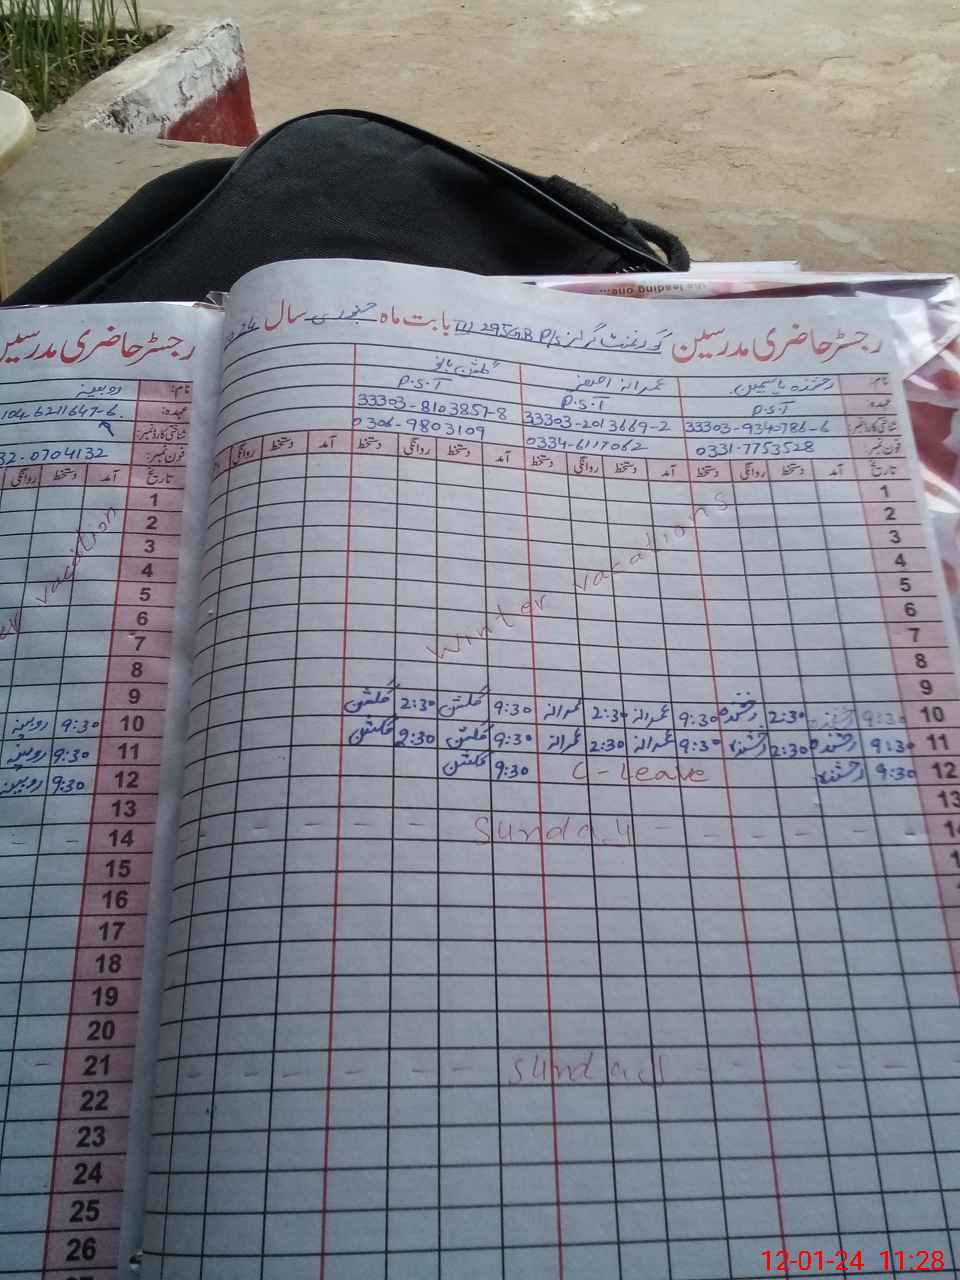 the leading one...
رجسٹر حاضری مدرسین گورنمنٹ گرلز P/s 295GB بابت ماہ جنوری سال
نام: رخشندہ یاسمین عمرانہ گلشن
عہدہ: P.S.T P.S.T P.S.T
شناختی کارڈ نمبر: 33303-9340786-6 33303-2013669-2 33303-8103857-8
فون نمبر: 0331-7753528 0334-6117062 0306-9803109
تاریخ آمد دستخط روانگی دستخط آمد دستخط روانگی دستخط آمد دستخط روانگی دستخط آمد دستخط روانگی
1
2
3
4
5
6
7
8
winter vacations
9
10 9:30 رخشندہ 2:30 رخشندہ 9:30 عمرانہ 2:30 عمرانہ 9:30 گلشن 2:30 گلشن
11 9:30 رخشندہ 2:30 رخشندہ 9:30 عمرانہ 2:30 عمرانہ 9:30 گلشن 2:30 گلشن
12 9:30 رخشندہ C-Leave 9:30 گلشن
13
14 Sunday
Sunday
رجسٹر حاضری مدرسین
نام: روبینہ
عہدہ:
شناختی کارڈ نمبر: 104-6211647-6
فون نمبر: 32-0704132
تاریخ آمد دستخط روانگی
1
2
3
4
5
6
7
8
vacation
9
10 9:30 روبینہ
11 9:30 روبینہ
12 9:30 روبینہ
13
14
15
16
17
18
19
20
21
22
23
24
25
26
12-01-24 11:28